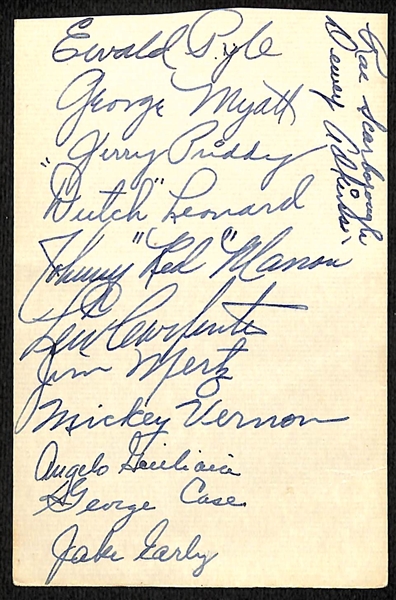 Ewald Pyle
George Myatt
Jerry Priddy
"Dutch" Leonard
Johnny "Red" Marion
Lew Carpenter
Jim Mertz
Mickey Vernon
Angelo Giuliani
George Case
Jake Early
Rae Scarborough
Dewey Adkins